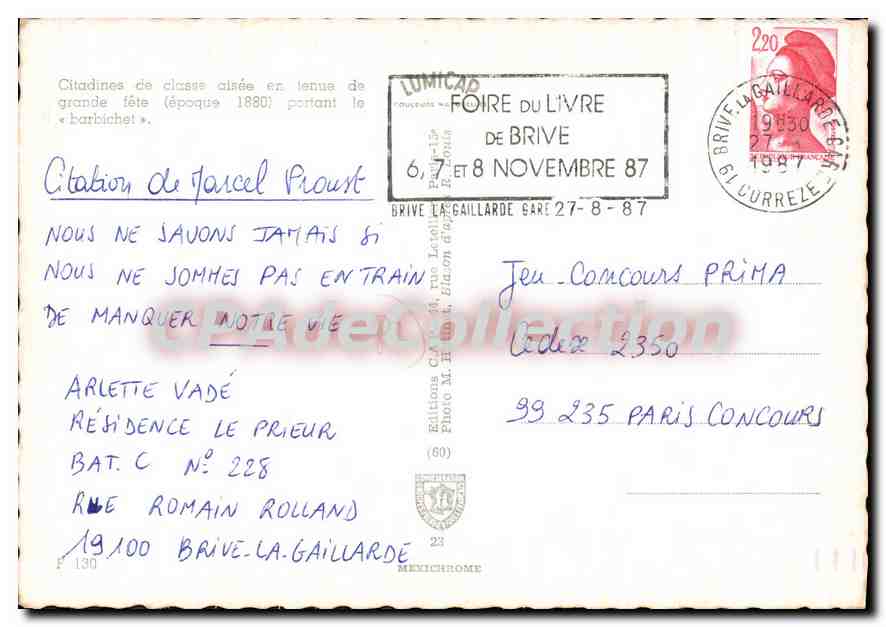 Citadines de classe aisée en tenue de
grande fête (époque 1880) portant le
« barbichet ».
Citation de Marcel Proust
NOUS NE SAVONS JAMAIS SI
NOUS NE SOMMES PAS EN TRAIN
DE MANQUER NOTRE VIE
ARLETTE VADÉ
RÉSIDENCE LE PRIEUR
BAT. C N° 228
RUE ROMAIN ROLLAND
19100 BRIVE-LA-GAILLARDE
F 130
LUMICAP
FOIRE DU LIVRE
DE BRIVE
6, 7 ET 8 NOVEMBRE 87
BRIVE LA GAILLARDE GARE 27-8-87
2,20
BRIVE-LA-GAILLARDE GARE
19H30
27
1987
19 CORREZE
Jeu-Concours PRIMA
Cedex 2350
99 235 PARIS CONCOURS
Editions rue Paris-15e
Photo M. Blason d'après R. Louis
(60)
23
MEXICHROME
CPAdeCollection